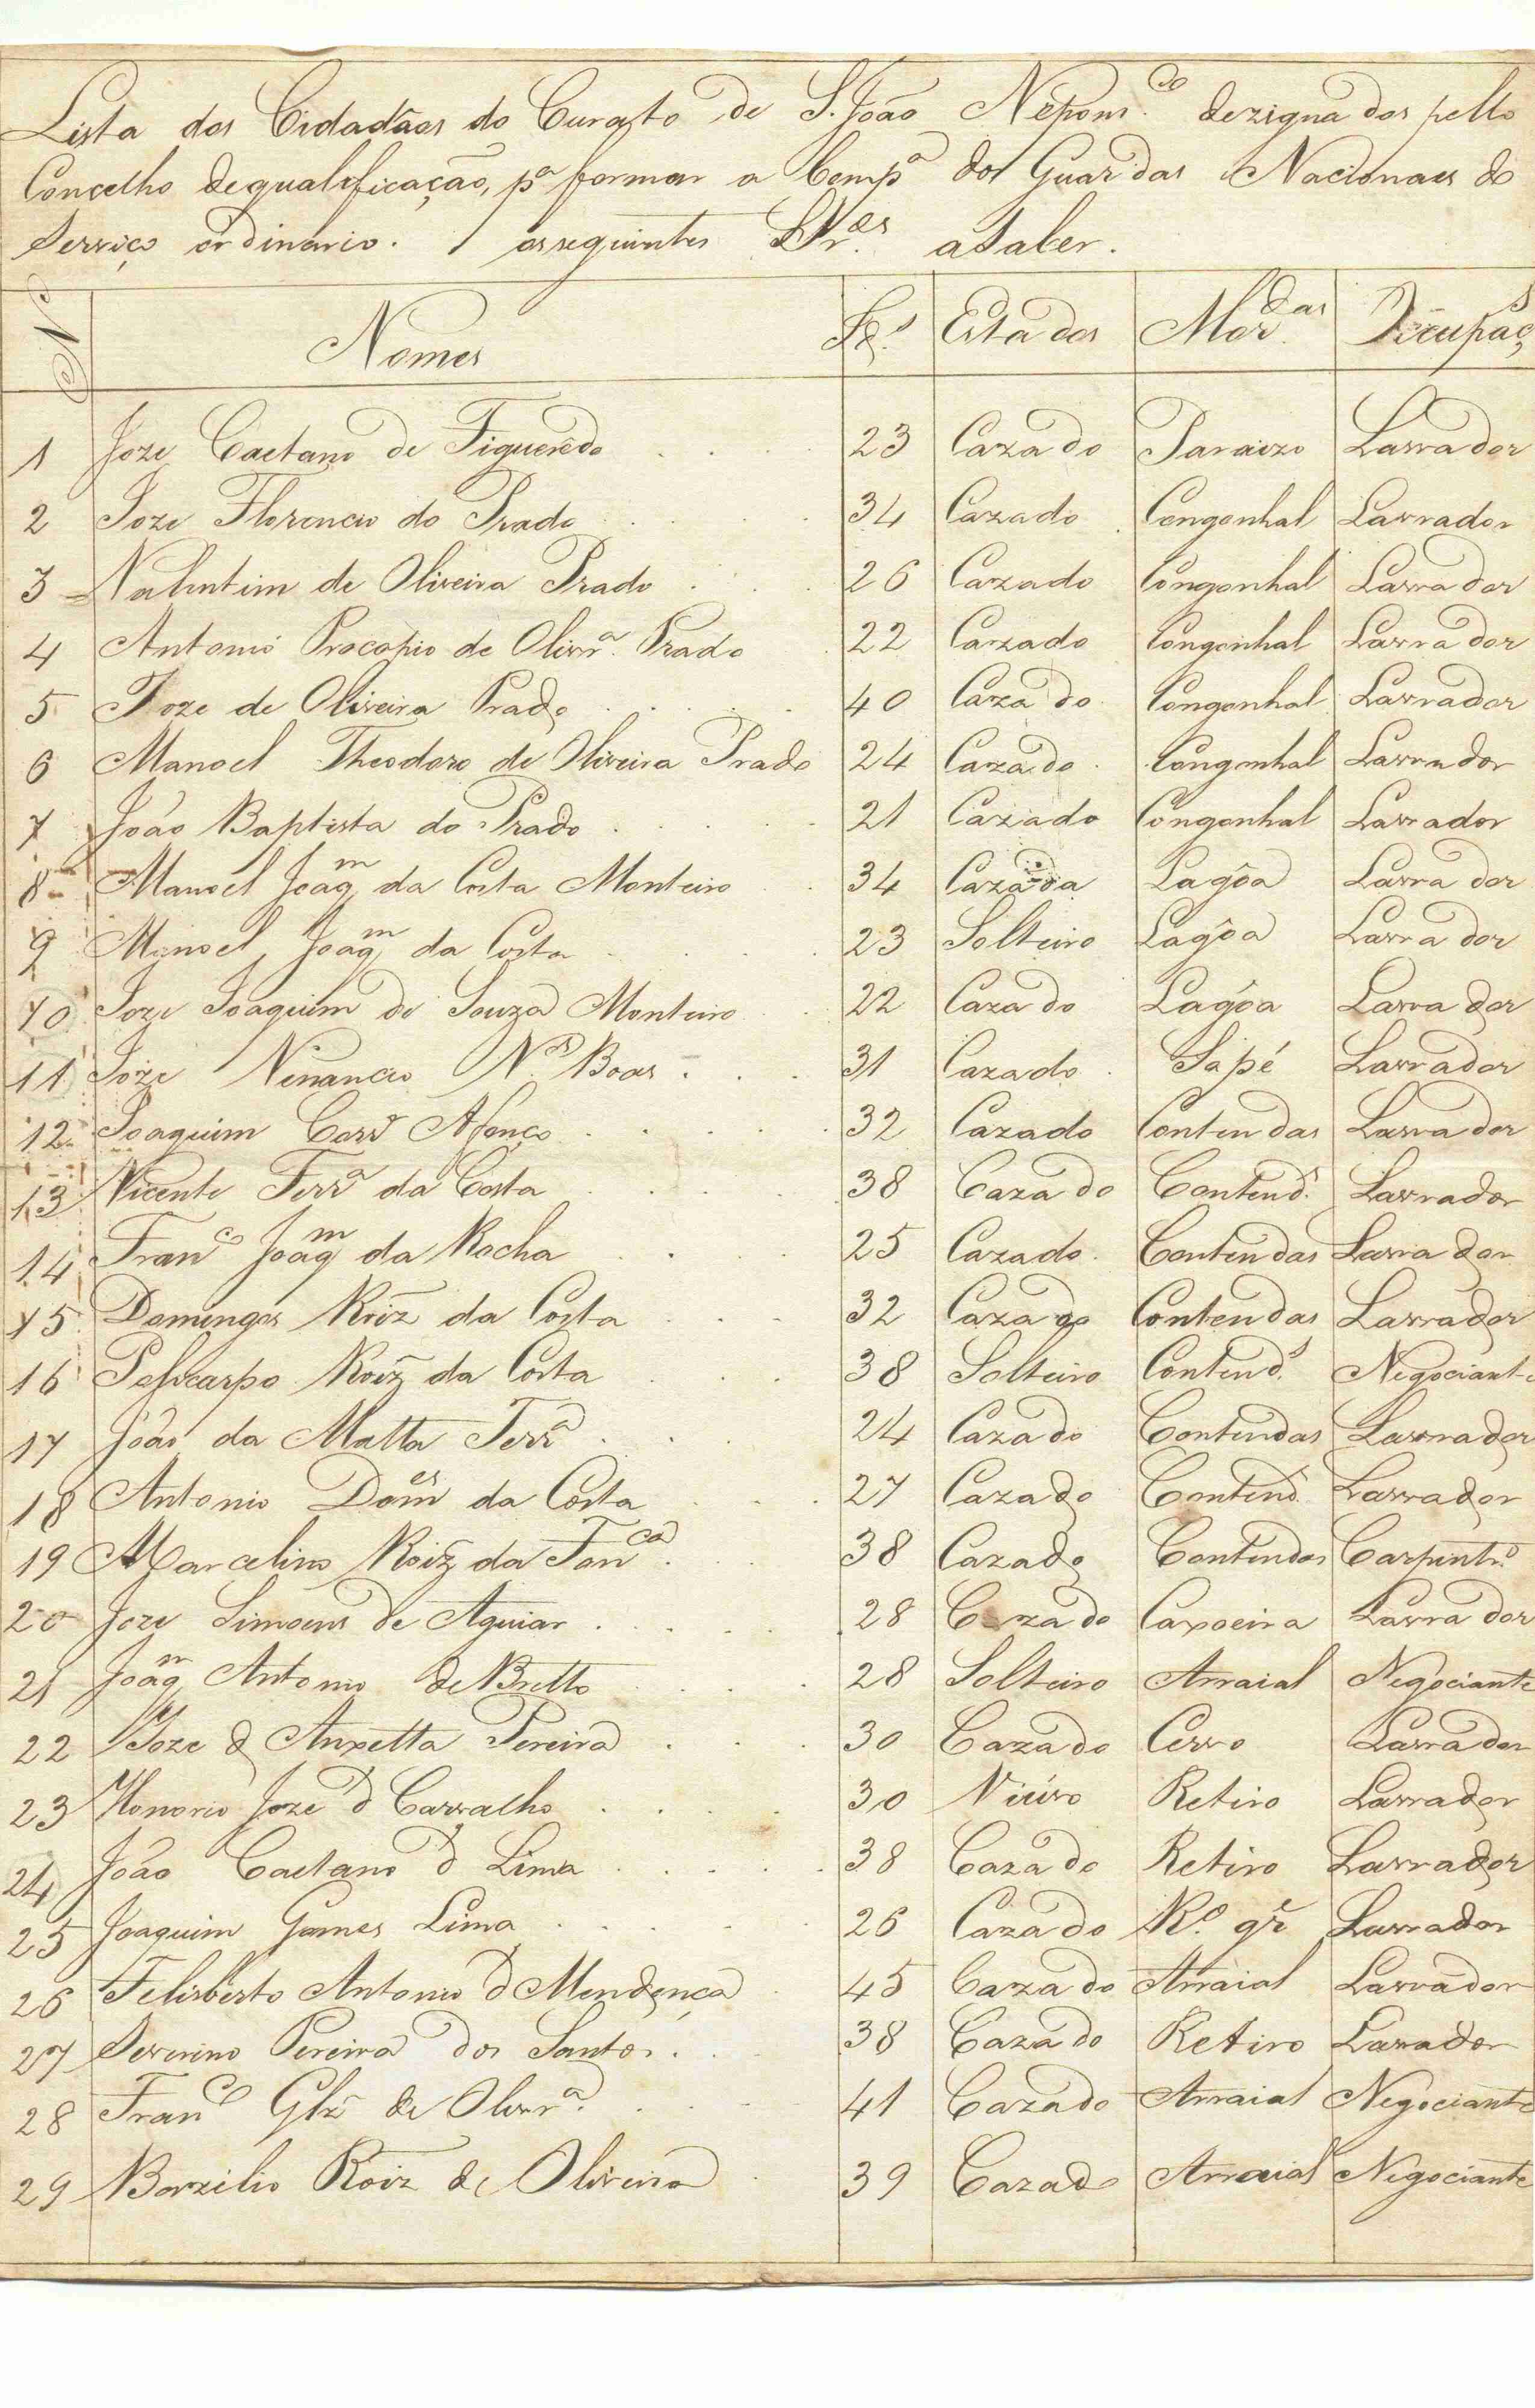 Lista dos Cidadãos do Curato de S. João Nepom.co dezignados pello
Concelho de qualificação, p.a formar a Comp.a dos Guardas Nacionaes do
Serviço ordinario. os seguintes Snr.es a Saber.
N.o Nomes Id.s Estados Mor.das Occupaç.s
1 Joze Caetano de Figueredo 23 Cazado Paraizo Lavrador
2 Joze Florencio do Prado 34 Cazado Congonhal Lavrador
3 Valentim de Oliveira Prado 26 Cazado Congonhal Lavrador
4 Antonio Procopio de Olivr.a Prado 22 Cazado Congonhal Lavrador
5 Joze de Oliveira Prado 40 Cazado Congonhal Lavrador
6 Manoel Theodoro de Oliveira Prado 24 Cazado Congonhal Lavrador
7 João Baptista do Prado 21 Cazado Congonhal Lavrador
8 Manoel Joaq.m da Costa Monteiro 34 Lagôa Lavrador
9 Manoel Joaq.m da Costa 23 Solteiro Lagôa Lavrador
10 Joze Joaquim de Souza Monteiro 22 Cazado Lagôa Lavrador
11 Joze Venancio V.as Boas 31 Cazado Sapé Lavrador
12 Joaquim Afonço 32 Cazado Contendas Lavrador
13 Vicente Ferr.a da Costa 38 Cazado Contend.s Lavrador
14 Fran.co Joaq.m da Rocha 25 Cazado Contendas Lavrador
15 Domingos Roiz da Costa 32 Cazado Contendas Lavrador
16 Policarpo Roiz da Costa 38 Solteiro Contend.s Negociante
17 João da Matta Ferr.a 24 Cazado Contendas Lavrador
18 Antonio Dom.es da Costa 27 Cazado Contend.s Lavrador
19 Marcelino Roiz da Fon.ca 38 Cazado Contendas Carpintr.o
20 Joze Simoens de Aguiar 28 Cazado Capoeira Lavrador
21 Joaq.m Antonio de Britto 28 Solteiro Arraial Negociante
22 Joze d Anxetta Pereira 30 Cazado Cervo Lavrador
23 Honorio Joze d Carvalho 30 Viuvo Retiro Lavrador
24 João Caetano d Lima 38 Cazado Retiro Lavrador
25 Joaquim Gomes Lima 26 Cazado R.o gr.e Lavrador
26 Felisberto Antonio d Mendonça 45 Cazado Arraial Lavrador
27 Severino Pereira dos Santos 38 Cazado Retiro Lavrador
28 Fran.co Glz de Olivr.a 41 Cazado Arraial Negociante
29 Bazilio Roiz de Oliveira 39 Cazado Arraial Negociante